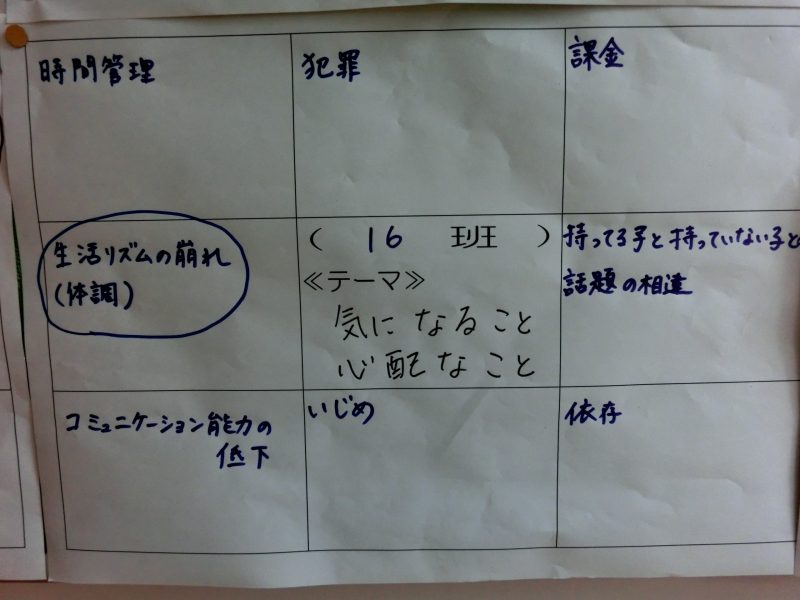 時間管理
犯罪
課金
生活リズムの崩れ
(体調)
( 16 班 )
≪テーマ≫
気になること
心配なこと
持ってる子と持っていない子と
話題の相違
コミュニケーション能力の
低下
いじめ
依存